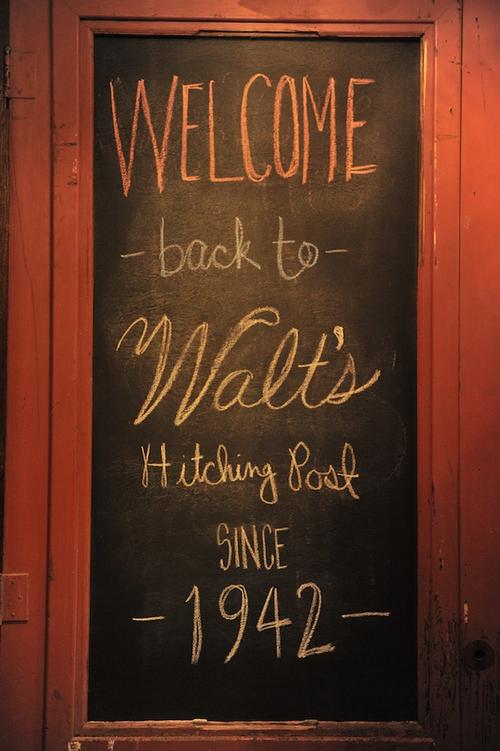 WELCOME
-back to-
Walt's
Hitching Post
SINCE
-1942-